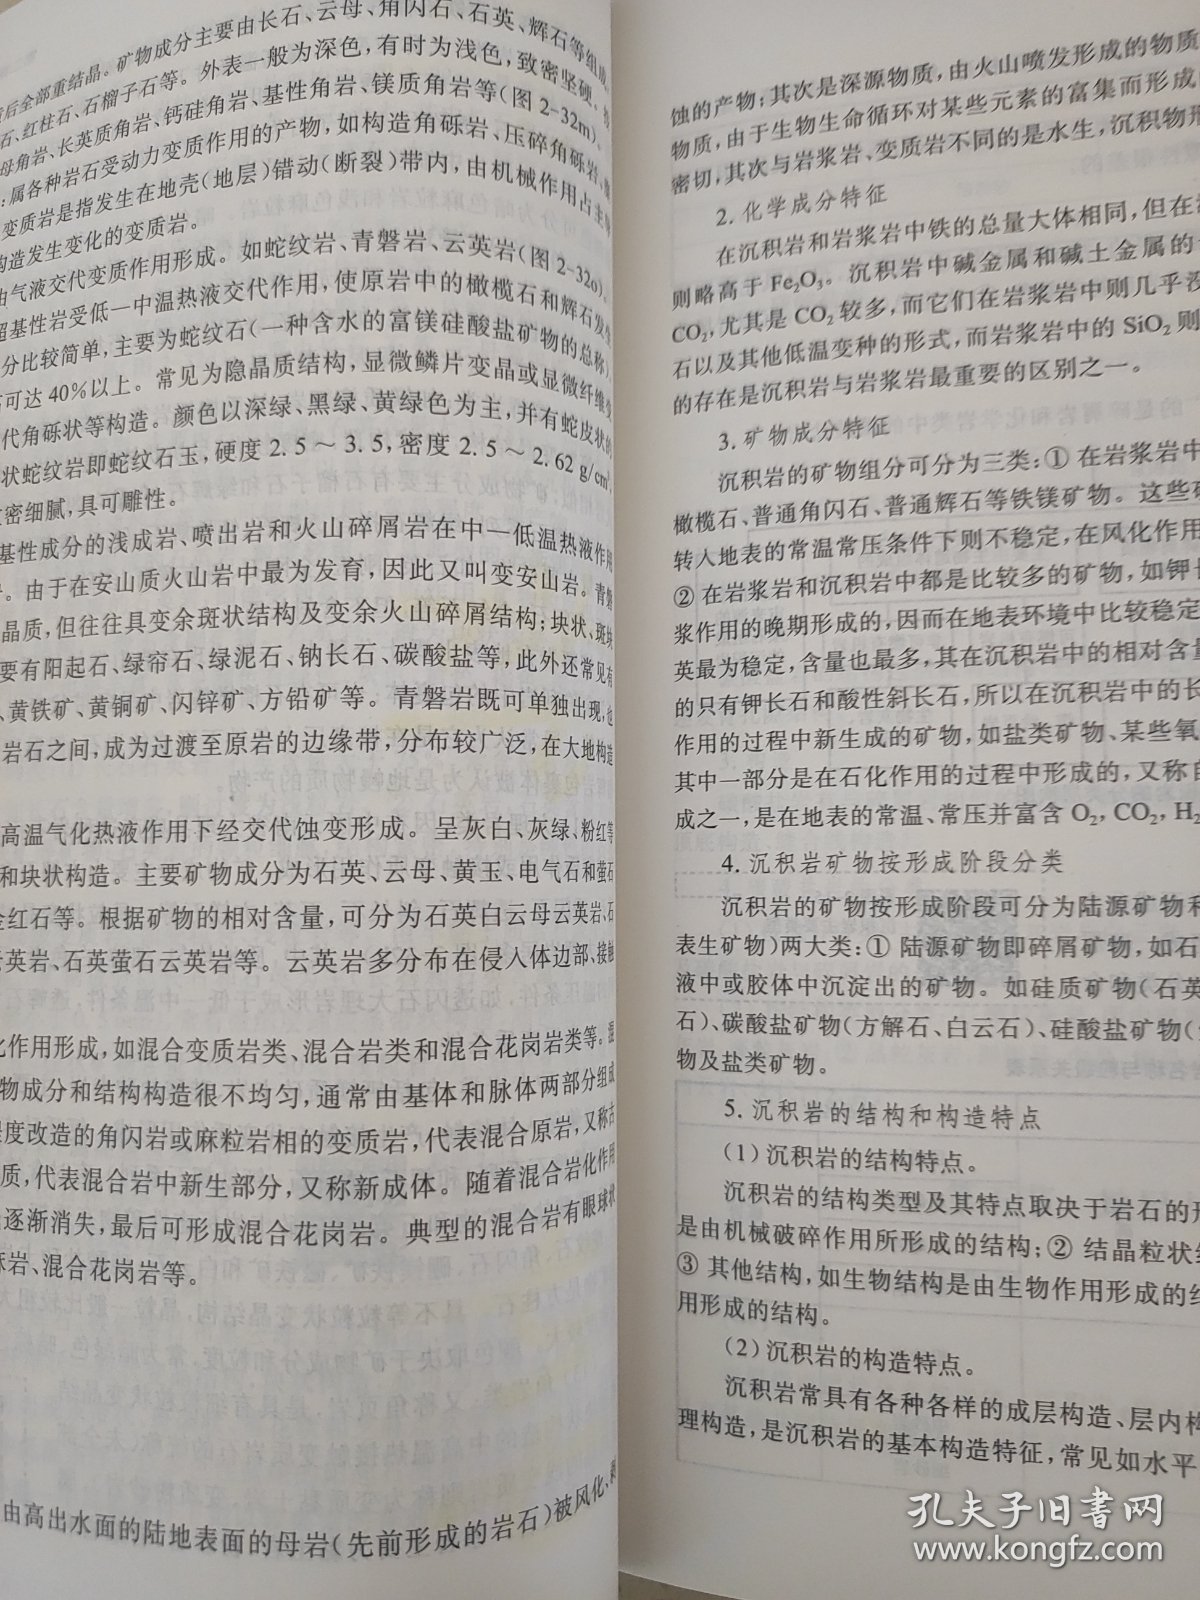 后全部重结晶。矿物成分主要由长石、云母、角闪石、石英、辉石等组成
石、红柱石、石榴子石等。外表一般为深色，有时为浅色，致密坚硬。
母角岩、长英质角岩、钙硅角岩、基性角岩、镁质角岩等(图 2-32m)。
:属各种岩石受动力变质作用的产物，如构造角砾岩、压碎角砾岩、
变质岩是指发生在地壳(地层)错动(断裂)带内，由机械作用占主
构造发生变化的变质岩。
由气液交代变质作用形成。如蛇纹岩、青磐岩、云英岩(图 2-32o)。
超基性岩受低—中温热液交代作用，使原岩中的橄榄石和辉石发生
分比较简单，主要为蛇纹石(一种含水的富镁硅酸盐矿物的总称)，
可达 40%以上。常见为隐晶质结构，显微鳞片变晶或显微纤维变
代角砾状等构造。颜色以深绿、黑绿、黄绿色为主，并有蛇皮状的
状蛇纹岩即蛇纹石玉，硬度 2.5～3.5，密度 2.5～2.62 g/cm³，
密细腻，具可雕性。
基性成分的浅成岩、喷出岩和火山碎屑岩在中—低温热液作用
。由于在安山质火山岩中最为发育，因此又叫变安山岩。青磐
晶质，但往往具变余斑状结构及变余火山碎屑结构；块状、斑块
要有阳起石、绿帘石、绿泥石、钠长石、碳酸盐等，此外还常见有
、黄铁矿、黄铜矿、闪锌矿、方铅矿等。青磐岩既可单独出现，也
岩石之间，成为过渡至原岩的边缘带，分布较广泛，在大地构造
高温气化热液作用下经交代蚀变形成。呈灰白、灰绿、粉红等
和块状构造。主要矿物成分为石英、云母、黄玉、电气石和萤石
金红石等。根据矿物的相对含量，可分为石英白云母云英岩、石
英岩、石英萤石云英岩等。云英岩多分布在侵入体边部、接触
化作用形成，如混合变质岩类、混合岩类和混合花岗岩类等。混
物成分和结构构造很不均匀，通常由基体和脉体两部分组成
程度改造的角闪岩或麻粒岩相的变质岩，代表混合原岩，又称古
质，代表混合岩中新生部分，又称新成体。随着混合岩化作用
逐渐消失，最后可形成混合花岗岩。典型的混合岩有眼球状
麻岩、混合花岗岩等。
由高出水面的陆地表面的母岩(先前形成的岩石)被风化、剥
蚀的产物；其次是深源物质，由火山喷发形成的物质
物质，由于生物生命循环对某些元素的富集而形成
密切，其次与岩浆岩、变质岩不同的是水生，沉积物形
2. 化学成分特征
在沉积岩和岩浆岩中铁的总量大体相同，但在沉
则略高于 Fe₂O₃。沉积岩中碱金属和碱土金属的
CO₂，尤其是 CO₂ 较多，而它们在岩浆岩中则几乎没
石以及其他低温变种的形式，而岩浆岩中的 SiO₂ 则
的存在是沉积岩与岩浆岩最重要的区别之一。
3. 矿物成分特征
沉积岩的矿物组分可分为三类：① 在岩浆岩中
橄榄石、普通角闪石、普通辉石等铁镁矿物。这些矿
转入地表的常温常压条件下则不稳定，在风化作用
② 在岩浆岩和沉积岩中都是比较多的矿物，如钾长
浆作用的晚期形成的，因而在地表环境中比较稳定
英最为稳定，含量也最多，其在沉积岩中的相对含量
的只有钾长石和酸性斜长石，所以在沉积岩中的长
作用的过程中新生成的矿物，如盐类矿物、某些氧
其中一部分是在石化作用的过程中形成的，又称自
成之一，是在地表的常温、常压并富含 O₂，CO₂，H₂
4. 沉积岩矿物按形成阶段分类
沉积岩的矿物按形成阶段可分为陆源矿物和
表生矿物)两大类：① 陆源矿物即碎屑矿物，如石
液中或胶体中沉淀出的矿物。如硅质矿物(石英
石)、碳酸盐矿物(方解石、白云石)、硅酸盐矿物(
物及盐类矿物。
5. 沉积岩的结构和构造特点
(1) 沉积岩的结构特点。
沉积岩的结构类型及其特点取决于岩石的形
是由机械破碎作用所形成的结构；② 结晶粒状结
③ 其他结构，如生物结构是由生物作用形成的结
用形成的结构。
(2) 沉积岩的构造特点。
沉积岩常具有各种各样的成层构造、层内构
理构造，是沉积岩的基本构造特征，常见如水平
孔夫子旧书网
www.kongfz.com